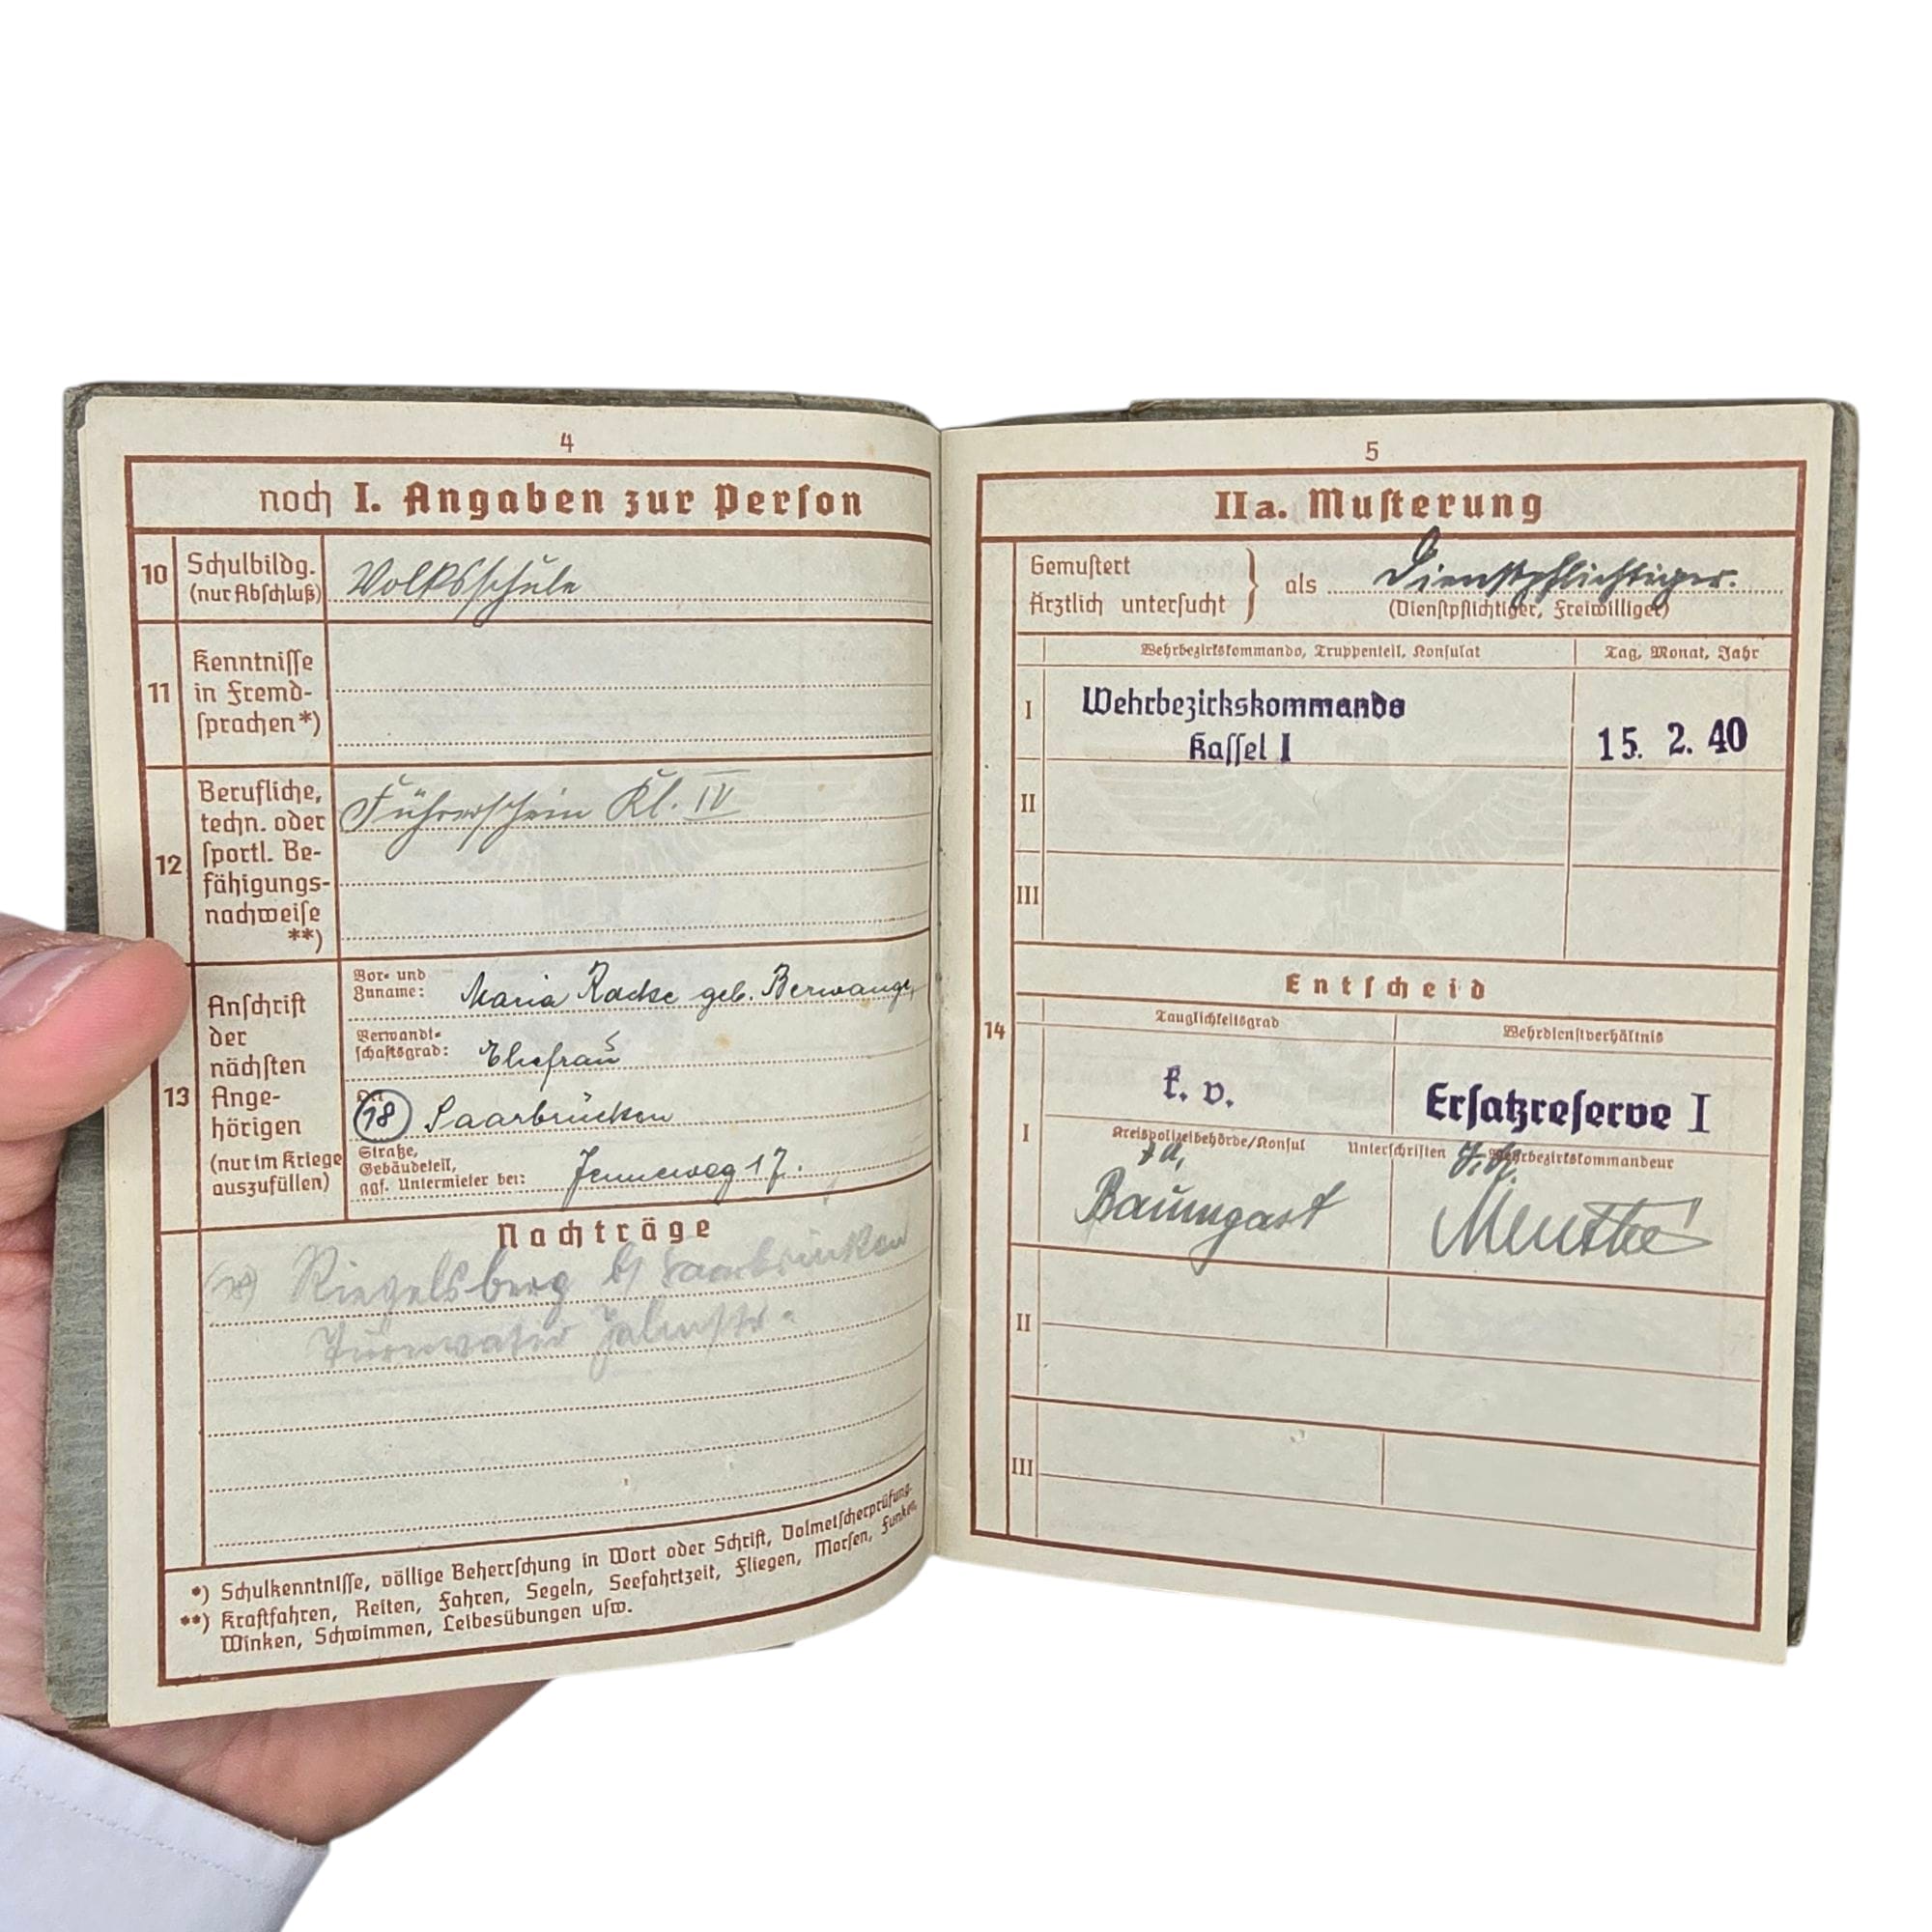 4
noch I. Angaben zur Person
10
Schulbildg.
(nur Abschluß)
Volksschule
11
Kenntnisse
in Fremd-
sprachen*)
12
Berufliche,
techn. oder
sportl. Be-
fähigungs-
nachweise
**)
Führerschein Kl. IV
13
Anschrift
der
nächsten
Ange-
hörigen
(nur im Kriege
auszufüllen)
Vor- und
Zuname:
Maria Racke geb. Berwange
Verwandt-
schaftsgrad:
Ehefrau
Ort
(18) Saarbrücken
Straße,
Gebäudeteil,
ggf. Untermieter bei:
Jenneweg 17.
Nachträge
(18) Riegelsberg b/ Saarbrücken
Turnvater Jahnstr.
*) Schulkenntnisse, völlige Beherrschung in Wort oder Schrift, Dolmetscherprüfung.
**) Kraftfahren, Reiten, Fahren, Segeln, Seefahrtzeit, Fliegen, Morsen, Funken,
Winken, Schwimmen, Leibesübungen usw.
5
IIa. Musterung
Gemustert
Ärztlich untersucht
als
Dienstpflichtiger.
(Dienstpflichtiger, Freiwilliger)
Wehrbezirkskommando, Truppenteil, Konsulat
Tag, Monat, Jahr
I
Wehrbezirkskommando
Kassel I
15. 2. 40
II
III
Entscheid
14
Tauglichkeitsgrad
Wehrdienstverhältnis
I
k. v.
Ersatzreserve I
Kreispolizeibehörde/Konsul
Unterschriften
Wehrbezirkskommandeur
Baumgast
II
III